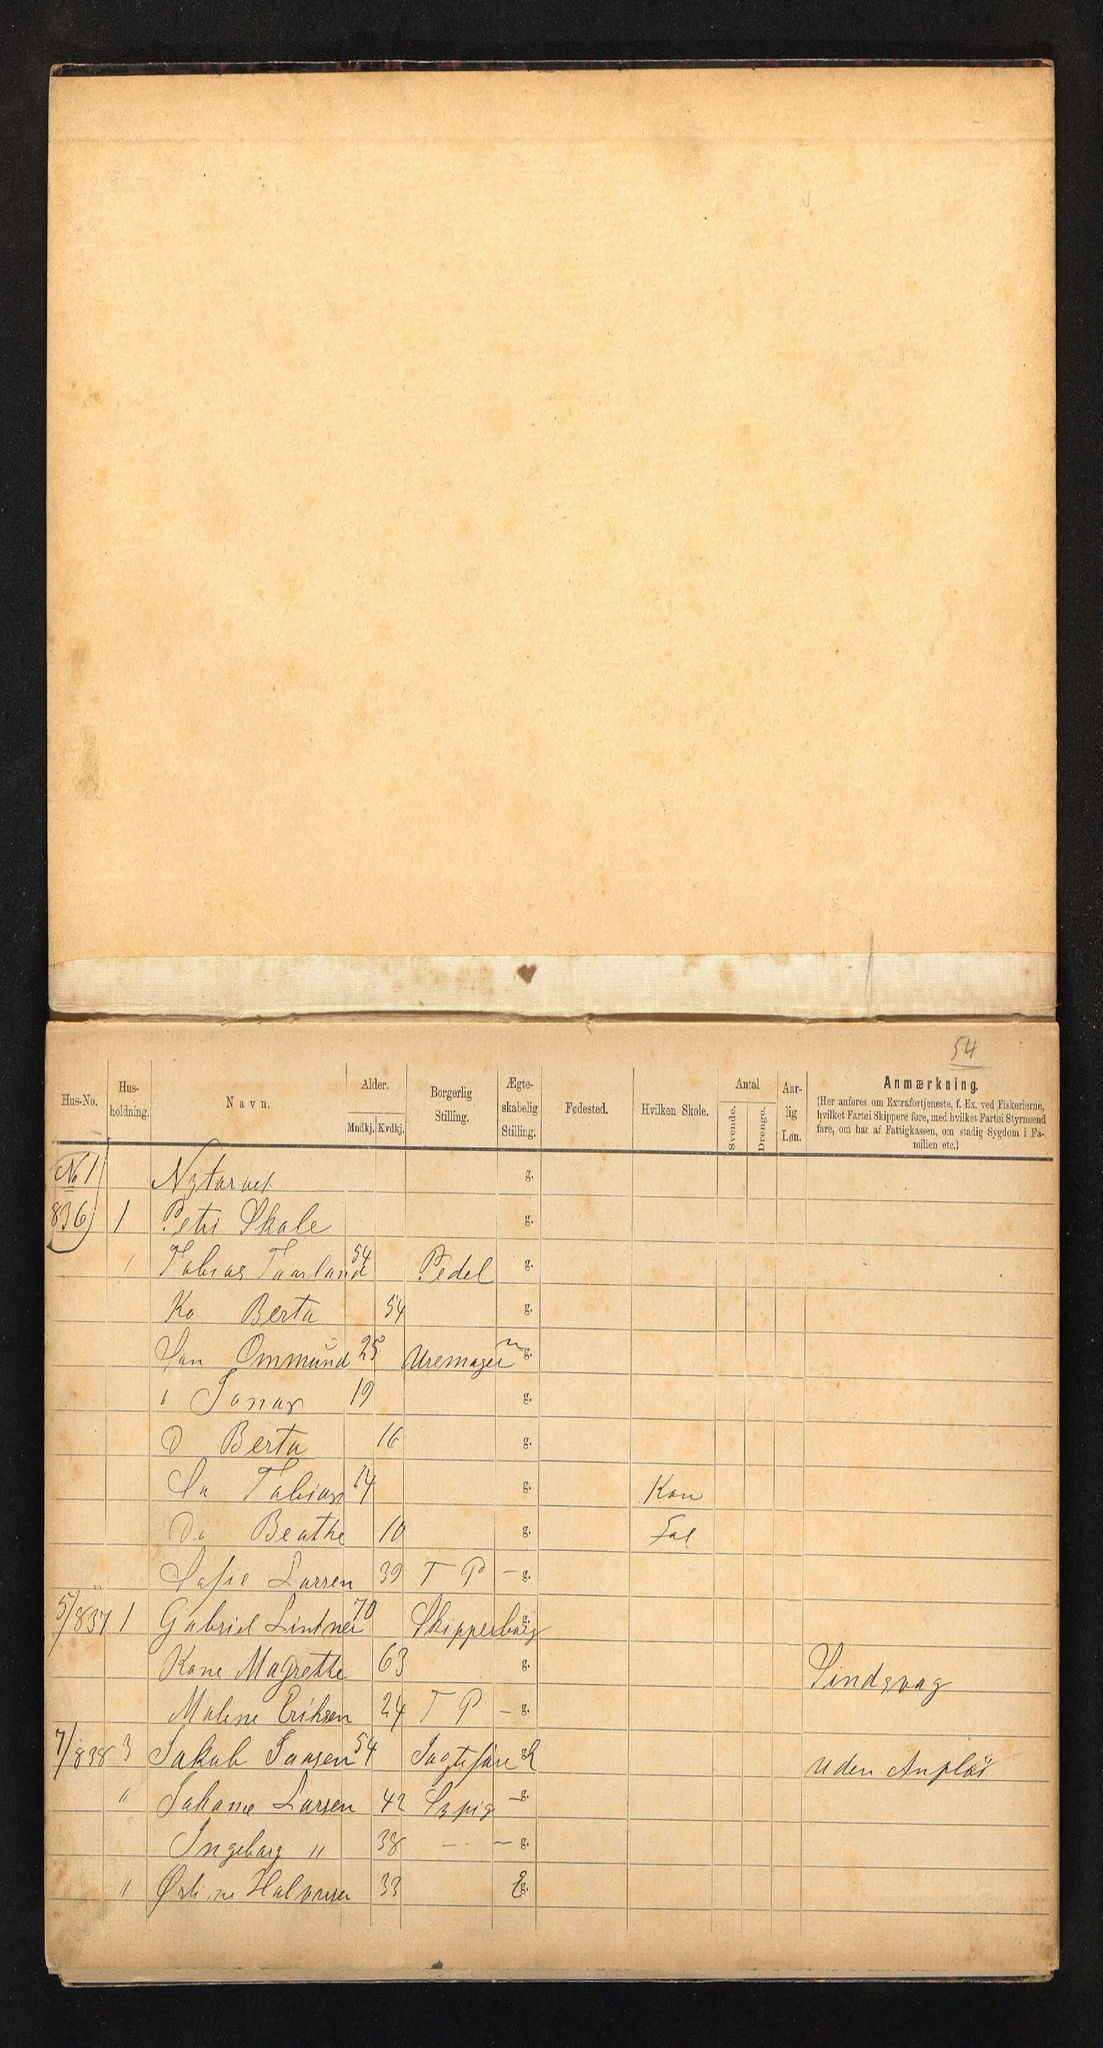 54
Hus-No. Hus-holdning. Navn. Alder. Mndkj. Kvdkj. Borgerlig Stilling. Ægte-skabelig Stilling. Fødested. Hvilken Skole. Antal Svende. Drenge. Aar-lig Løn. Anmærkning.
(Her anføres om Extrafortjeneste, f. Ex. ved Fiskerierne,
hvilket Fartøi Skippere føre, med hvilket Fartøi Styrmænd
fare, om har af Fattigkassen, om stadig Sygdom i Fa-
milien etc.)
No 1 Nytorvet g.
836 1 Petri Skole g.
Tobias Taarland 54 Pedel g.
Ko Berta 54 g.
Søn Ommund 25 Uremager g.
" Jonas 19 g.
D Berta 16 g.
Sø Tobias 14 g. Kon
Da Beathe 10 g. Fol
Sofie Larsen 39 T P - g.
5/837 1 Gabriel Lintner 70 Skipperborg g.
Kone Magrethe 63 g. Sindsvag
Malene Eriksen 24 T P - g.
7/838 3 Jakob Jaasen 54 Jagtfører g. uden
" Johanne Larsen 42 Sypig - g.
Ingeborg " 38 - - g.
" Halvorsen 33 E g.